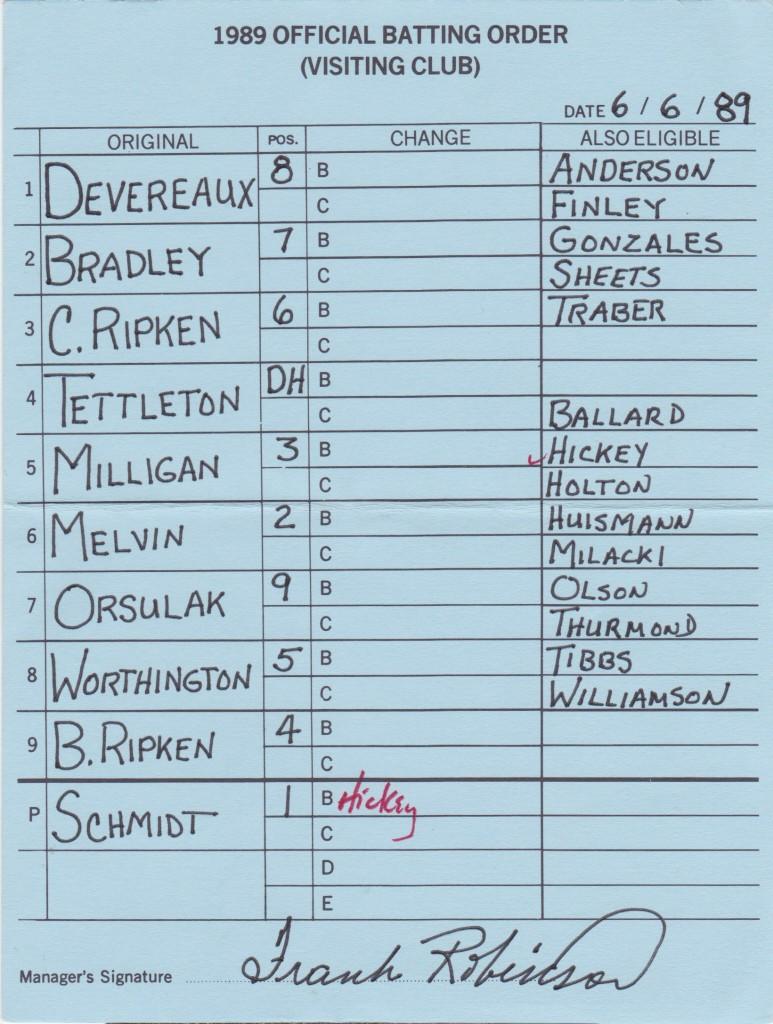 1989 OFFICIAL BATTING ORDER
(VISITING CLUB)
DATE 6 / 6 / 89
ORIGINAL POS. CHANGE ALSO ELIGIBLE
1 DEVEREAUX 8 B ANDERSON
C FINLEY
2 BRADLEY 7 B GONZALES
C SHEETS
3 C. RIPKEN 6 B TRABER
C
4 TETTLETON DH B
C BALLARD
5 MILLIGAN 3 B ✓ HICKEY
C HOLTON
6 MELVIN 2 B HUISMANN
C MILACKI
7 ORSULAK 9 B OLSON
C THURMOND
8 WORTHINGTON 5 B TIBBS
C WILLIAMSON
9 B. RIPKEN 4 B
C
P SCHMIDT 1 B Hickey
C
D
E
Manager's Signature Frank Robinson